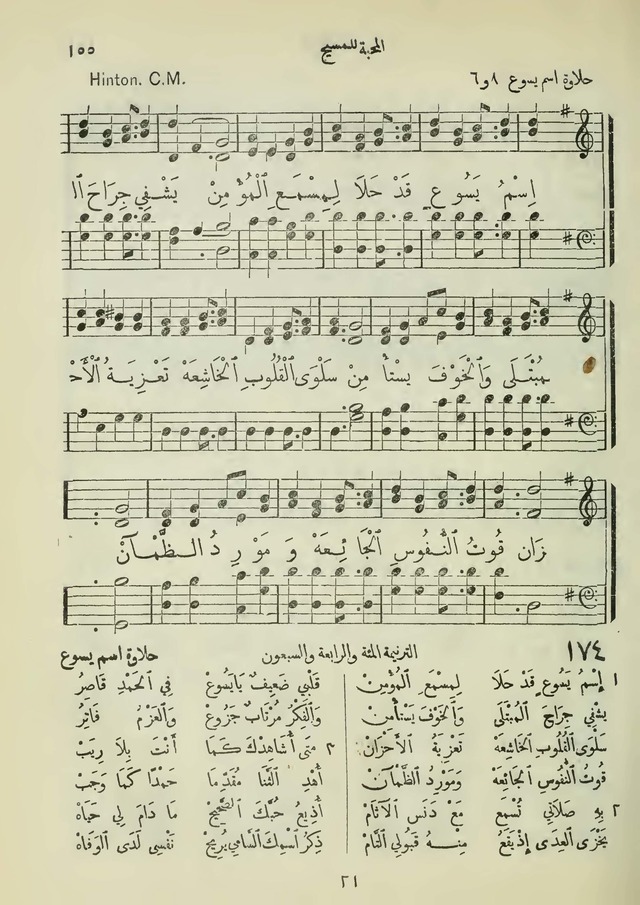 ١٥٥ المحبة للمسيح
Hinton. C.M. حلاوة اسم يسوع ٨و٦
اِسْمُ يَسُوعٍ قَدْ حَلَا لِمِسْمَعِ الْمُؤْمِنْ يَشْفِي جِرَاحَ الْ
مُبْتَلَى وَالْخَوْفَ يستأ مِنْ سَلْوَى الْقُلُوبِ الْخَاشِعَهْ تَعْزِيَةُ الْأَحْ
زَان قُوتُ النُّفُوسِ الْجَائِعَهْ وَمَوْرِدُ الظَّمْآنْ
١٧٤ الترنيمة المئة والرابعة والسبعون حلاوة اسم يسوع
١ إِسْمُ يَسُوعٍ قَدْ حَلَا لِمِسْمَعِ الْمُؤْمِنْ
يشْفِي جِرَاحَ الْمُبْتَلَى وَالْخَوْفَ يَسْتَأْمِنْ
سَلْوَى الْقُلُوبِ الْخَاشِعَهْ تَعْزِيَةُ الْأَحْزَانْ
قُوتُ النُّفُوسِ الْجَائِعَهْ وَمَوْرِدُ الظَّمْآنْ
٢ بِهِ صَلَاتِي تُسْمَعُ مَعْ دَنَسِ الْآثَامْ
يَخْزَى الْعِدَى إِذْ يَقَعُ مِنْهُ قَبُولِي التَّامْ
قَلْبِي ضَعِيفٌ يَا يَسُوعْ فِي الْحَمْدِ قَاصِرُ
وَالْفِكْرُ مُرْتَابٌ جَزُوعْ وَالْعَزْمُ فَاتِرُ
٣ مَتَى أُشَاهِدْكَ كَمَا أَنْتَ بِلَا رَيْبْ
أُهْدِ الثَّنَا مُقَدِّمَا حَمْدًا كَمَا وَجَبْ
أُذِيعُ حُبَّكَ الصَّحِيحْ مَا دَامَ لِي حَيَاهْ
ذِكْرُ اسْمِكَ السَّامِي يُرِيحْ نَفْسِي لَدَى الْوَفَاهْ
٢١